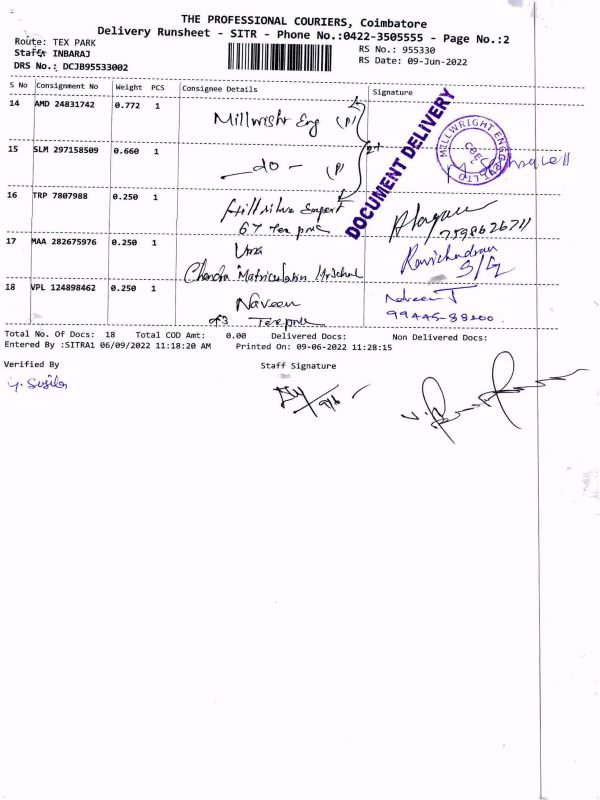 THE PROFESSIONAL COURIERS, Coimbatore
Delivery Runsheet - SITR - Phone No.:0422-3505555 - Page No.:2
Route: TEX PARK
RS No.: 955330
Staff: INBARAJ
RS Date: 09-Jun-2022
DRS No.: DCJB95533002
S No Consignment No Weight PCS Consignee Details Signature
14 AMD 24831742 0.772 1 Millwright Eng (P)
15 SLM 297158509 0.660 1 - do - (P)
MILLWRIGHT ENGG PVT LTD
DOCUMENT DELIVERY
16 TRP 7807988 0.250 1
7598626711
17 MAA 282675976 0.250 1 Uma
Chandra Matriculation Hr School
Ravichandran
S/G
18 VPL 124898462 0.250 1 Naveen
Naveen T
99445-88200
Total No. Of Docs: 18 Total COD Amt: 0.00 Delivered Docs: Non Delivered Docs:
Entered By :SITRA1 06/09/2022 11:18:20 AM Printed On: 09-06-2022 11:28:15
Verified By Staff Signature
9/6